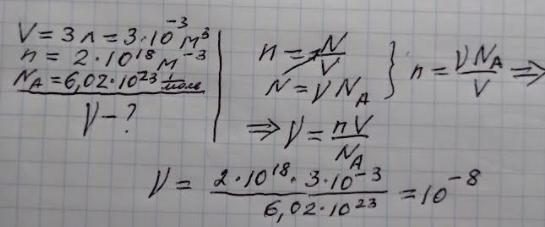 V = 3 л = 3·10⁻³ м³
n = 2·10¹⁸ м⁻³
N_A = 6,02·10²³ 1/моль
ν - ?
n = N/V
N = ν N_A } n = ν N_A / V ⇒
⇒ ν = nV / N_A
ν = 2·10¹⁸·3·10⁻³ / 6,02·10²³ = 10⁻⁸